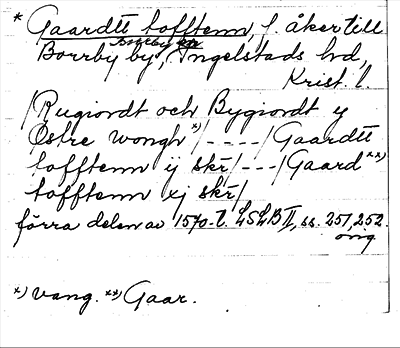 * Gaardtt tofftenn, f. åker till
Borrby by, Ingelstads hd,
Krist. l.
/Rugiordt och Bygiordt y
Østre wongh *)/----/Gaardtt
tofftenn ij skr̄/---/Gaard **)
tofftenn xj skr̄/
förra delen av 1570-t. LSLB II, ss. 251, 252.
orig.
*) vang. **) Gaar.